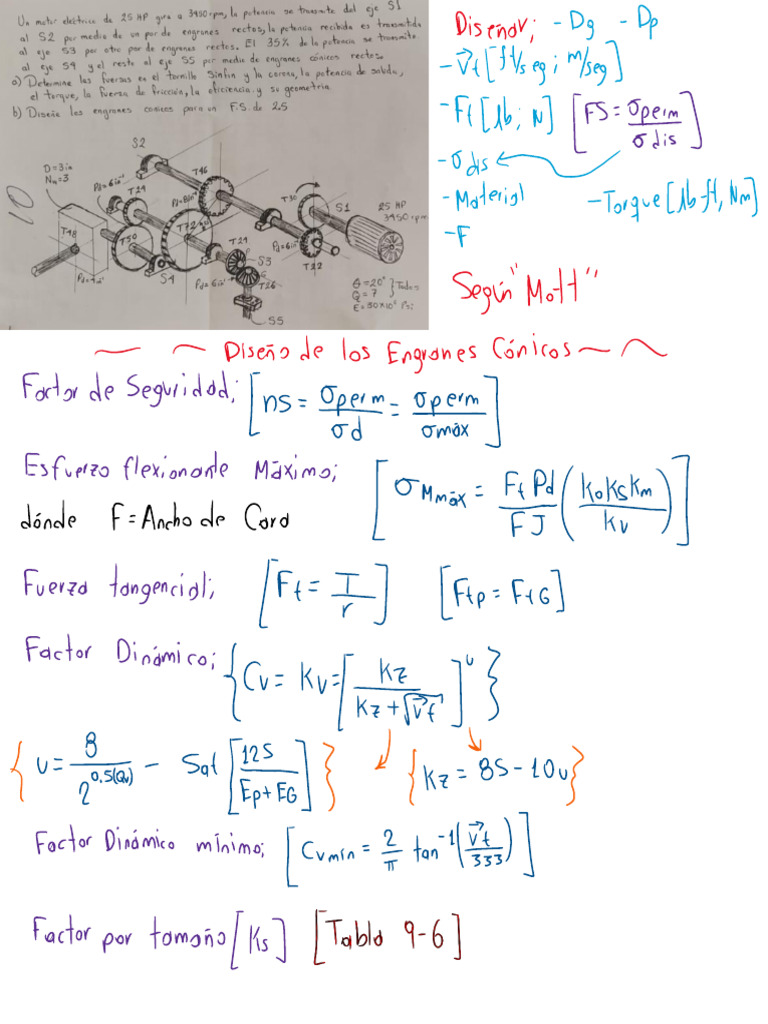 Un motor eléctrico de 25 HP gira a 3450 rpm, la potencia se transmite del eje S1
al S2 por medio de un par de engranes rectos, la potencia recibida es transmitida
al eje S3 por otro par de engranes rectos. El 35% de la potencia se transmite
al eje S4 y el resto al eje S5 por medio de engranes cónicos rectos.
a) Determine las fuerzas en el tornillo Sinfin y la corona, la potencia de salida,
el torque, la fuerza de fricción, la eficiencia y su geometria.
b) Diseñe los engranes conicos para un F.S. de 2.5
S2
D=3in
Nw=3
Pd=6in⁻¹
T24
T96
Pd=8in⁻¹
T30
S1
25 HP
3450 rpm
T48
T50
T72
Pd=6in⁻¹
T24
P
S3
G
T22
Pd=4in⁻¹
S4
Pd=6in⁻¹
T26
S5
θ=20°
Q=7
E=30x10⁶ Psi
} Todos
10
Diseñar; - Dg - Dp
- V⃗t [ft/seg ; m/seg]
- Ft [lb ; N] [FS = σperm / σdis]
- σdis
- Material - Torque [lb-ft, Nm]
- F
Según "Mott"
Diseño de los Engranes Cónicos
Factor de Seguridad; [ns = σperm / σd = σperm / σmáx]
Esfuerzo flexionante Máximo; [σMmáx = Ft Pd / F J (ko ks km / kv)]
dónde F = Ancho de Cara
Fuerza tangencial; [Ft = T / r] [Ftp = FtG]
Factor Dinámico; {Cv = Kv = [Kz / Kz + √V⃗t]^u}
{u = 8 / 2^0.5(Qv) - Sat [125 / Ep + EG]} {Kz = 85 - 10u}
Factor Dinámico mínimo; [Cvmín = 2/π tan⁻¹(V⃗t / 333)]
Factor por tamaño [Ks] [Tabla 9-6]